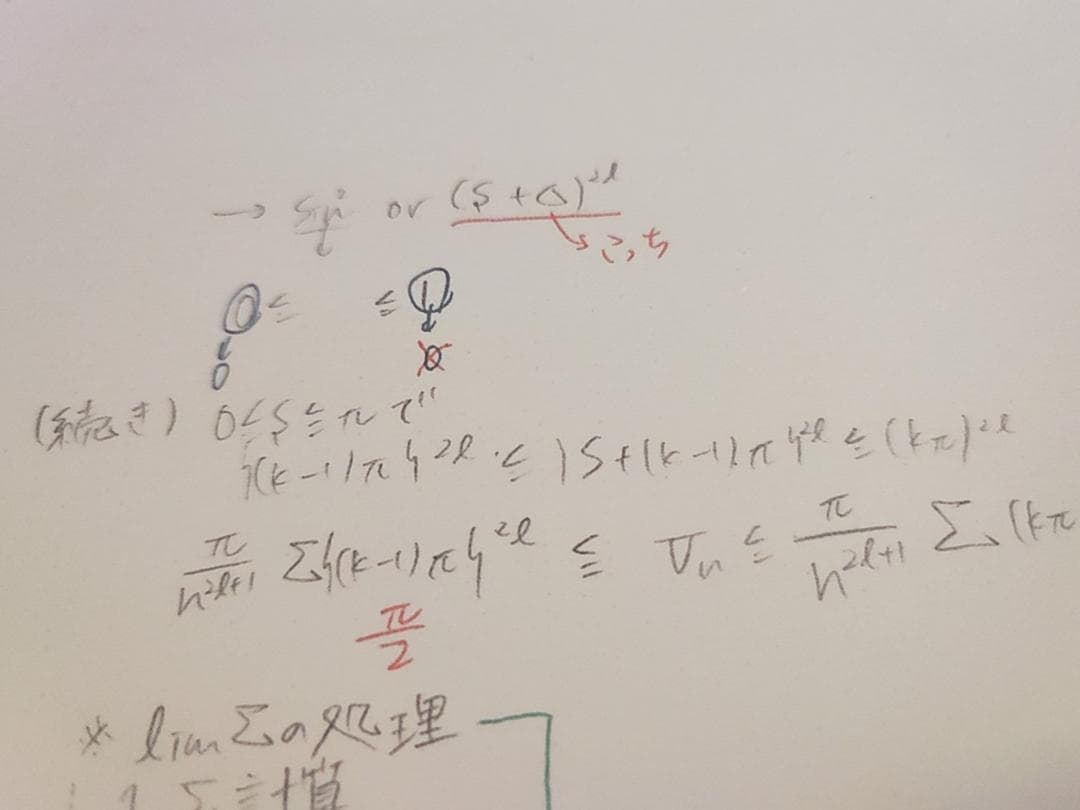 → sin² or (S + △)^{2l}
→ 0 ≤ ≤ 1
0
(続き) 0 ≤ S ≤ π で
{(k-1)π}^{2l} ≤ {S+(k-1)π}^{2l} ≤ (kπ)^{2l}
π/n^{2l+1} Σ{(k-1)π}^{2l} ≤ V_n ≤ π/n^{2l+1} Σ(kπ
π/2
* lim Σの処理
1 Σ計算